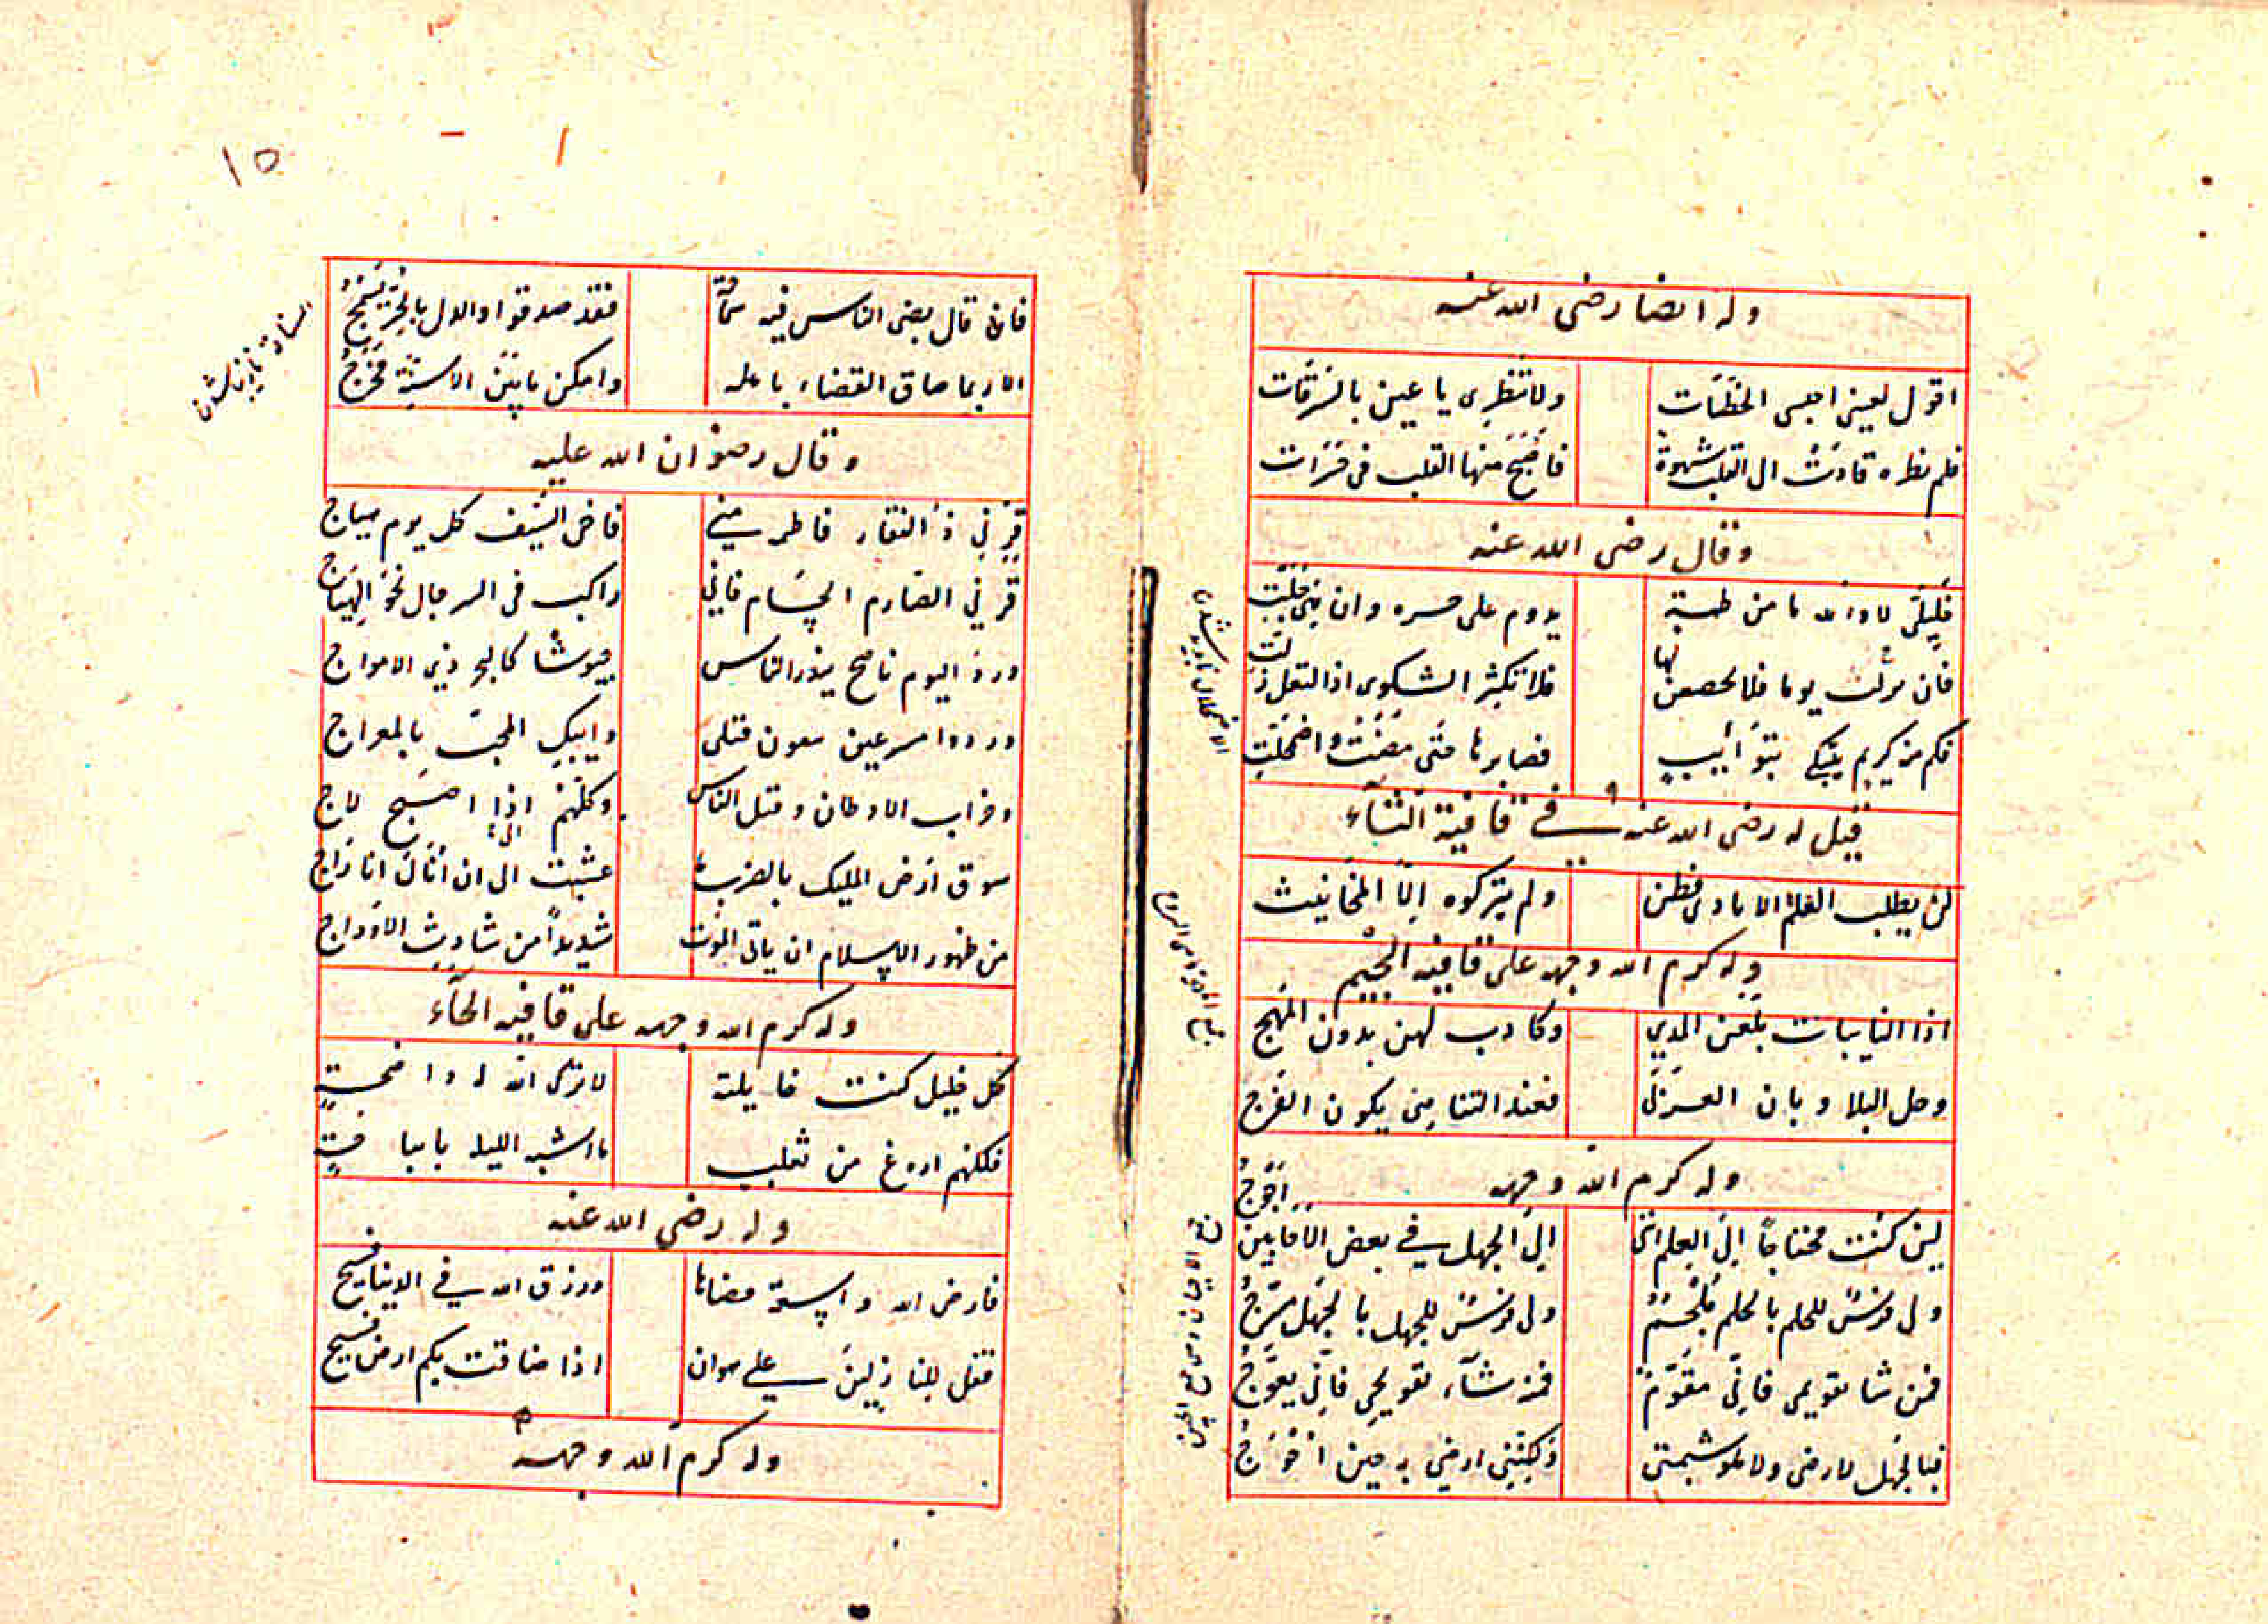 وله ايضا رضى الله عنه
اقول لعينى احبس اللحظات ولا تنظرى يا عين بالسرقات
فلم نظره قادت الى القلب شهوة فاصبح منها القلب فى حسرات
وقال رضى الله عنه
خليلى لا والله ما من ملمة يدوم على حره وان هى جلت
فان نزلت يوما فلا تخضعن لها فلا تكثر الشكوى اذا النعل زلت
فكم من كريم يبتلى بنوائب فصابرها حتى مضت واضمحلت
قيل له رضى الله عنه فى قافية الثاء
لن يطلب العلم الا بازى فطن ولم يتركوه الا المخانيث
وله كرم الله وجهه على قافيه الجيم
اذا النايبات بلغن المدي وكادت لهن تذوب المهج
وحل البلا وبان العزى فعند التناهى يكون الفرج
وله كرم الله وجهه
لين كنت محتاجا الى الحلم اننى الى الجهل فى بعض الاحايين احوج
ولى فرس للحلم بالحلم ملجم ولى فرس للجهل بالجهل مسرج
فمن شا تقويمى فانى مقوم فمن شاء تعويجى فانى معوج
فبالجهل لا ارضى ولا هو شيمتى ولكننى ارضى به حين احوج
١٥
فان قال بعض الناس فيه سماجة فقد صدقوا والذل بالحر يسمج
الا ربما ضاق القضاء باهله وامكن ما بين الاسنة مخرج
وقال رضوان الله عليه
قربى ذا الفقار فاطم منى فاخى السيف كل يوم هياج
قربى الصارم الحسام فانى راكب فى الرجال نحو الهياج
ورد اليوم ناصح ينذر الناس جيوشا كالبحر ذى الامواج
وردوا مسرعين يبغون قتلى وابيك المحب بالمعراج
وخراب الاوطان وقتل الناس وكلهم اذا اصبح لاج
سوف ارضى المليك بالضرب ما عشت الى ان انال انا راج
من ظهور الاسلام ان ياتى الموت شهيدا من شاخب الاوداج
وله كرم الله وجهه على قافيه الحاء
كل خليل كنت خاللته لا ترك الله له واضحة
فكلهم اروغ من ثعلب ما اشبه الليلة بالبارحة
وله رضى الله عنه
فارض الله واسعة فضاها ورزق الله فى الدنيا فسيح
فقل للنازلين على هوان اذا ضاقت بكم ارض فسيح
وله كرم الله وجهه